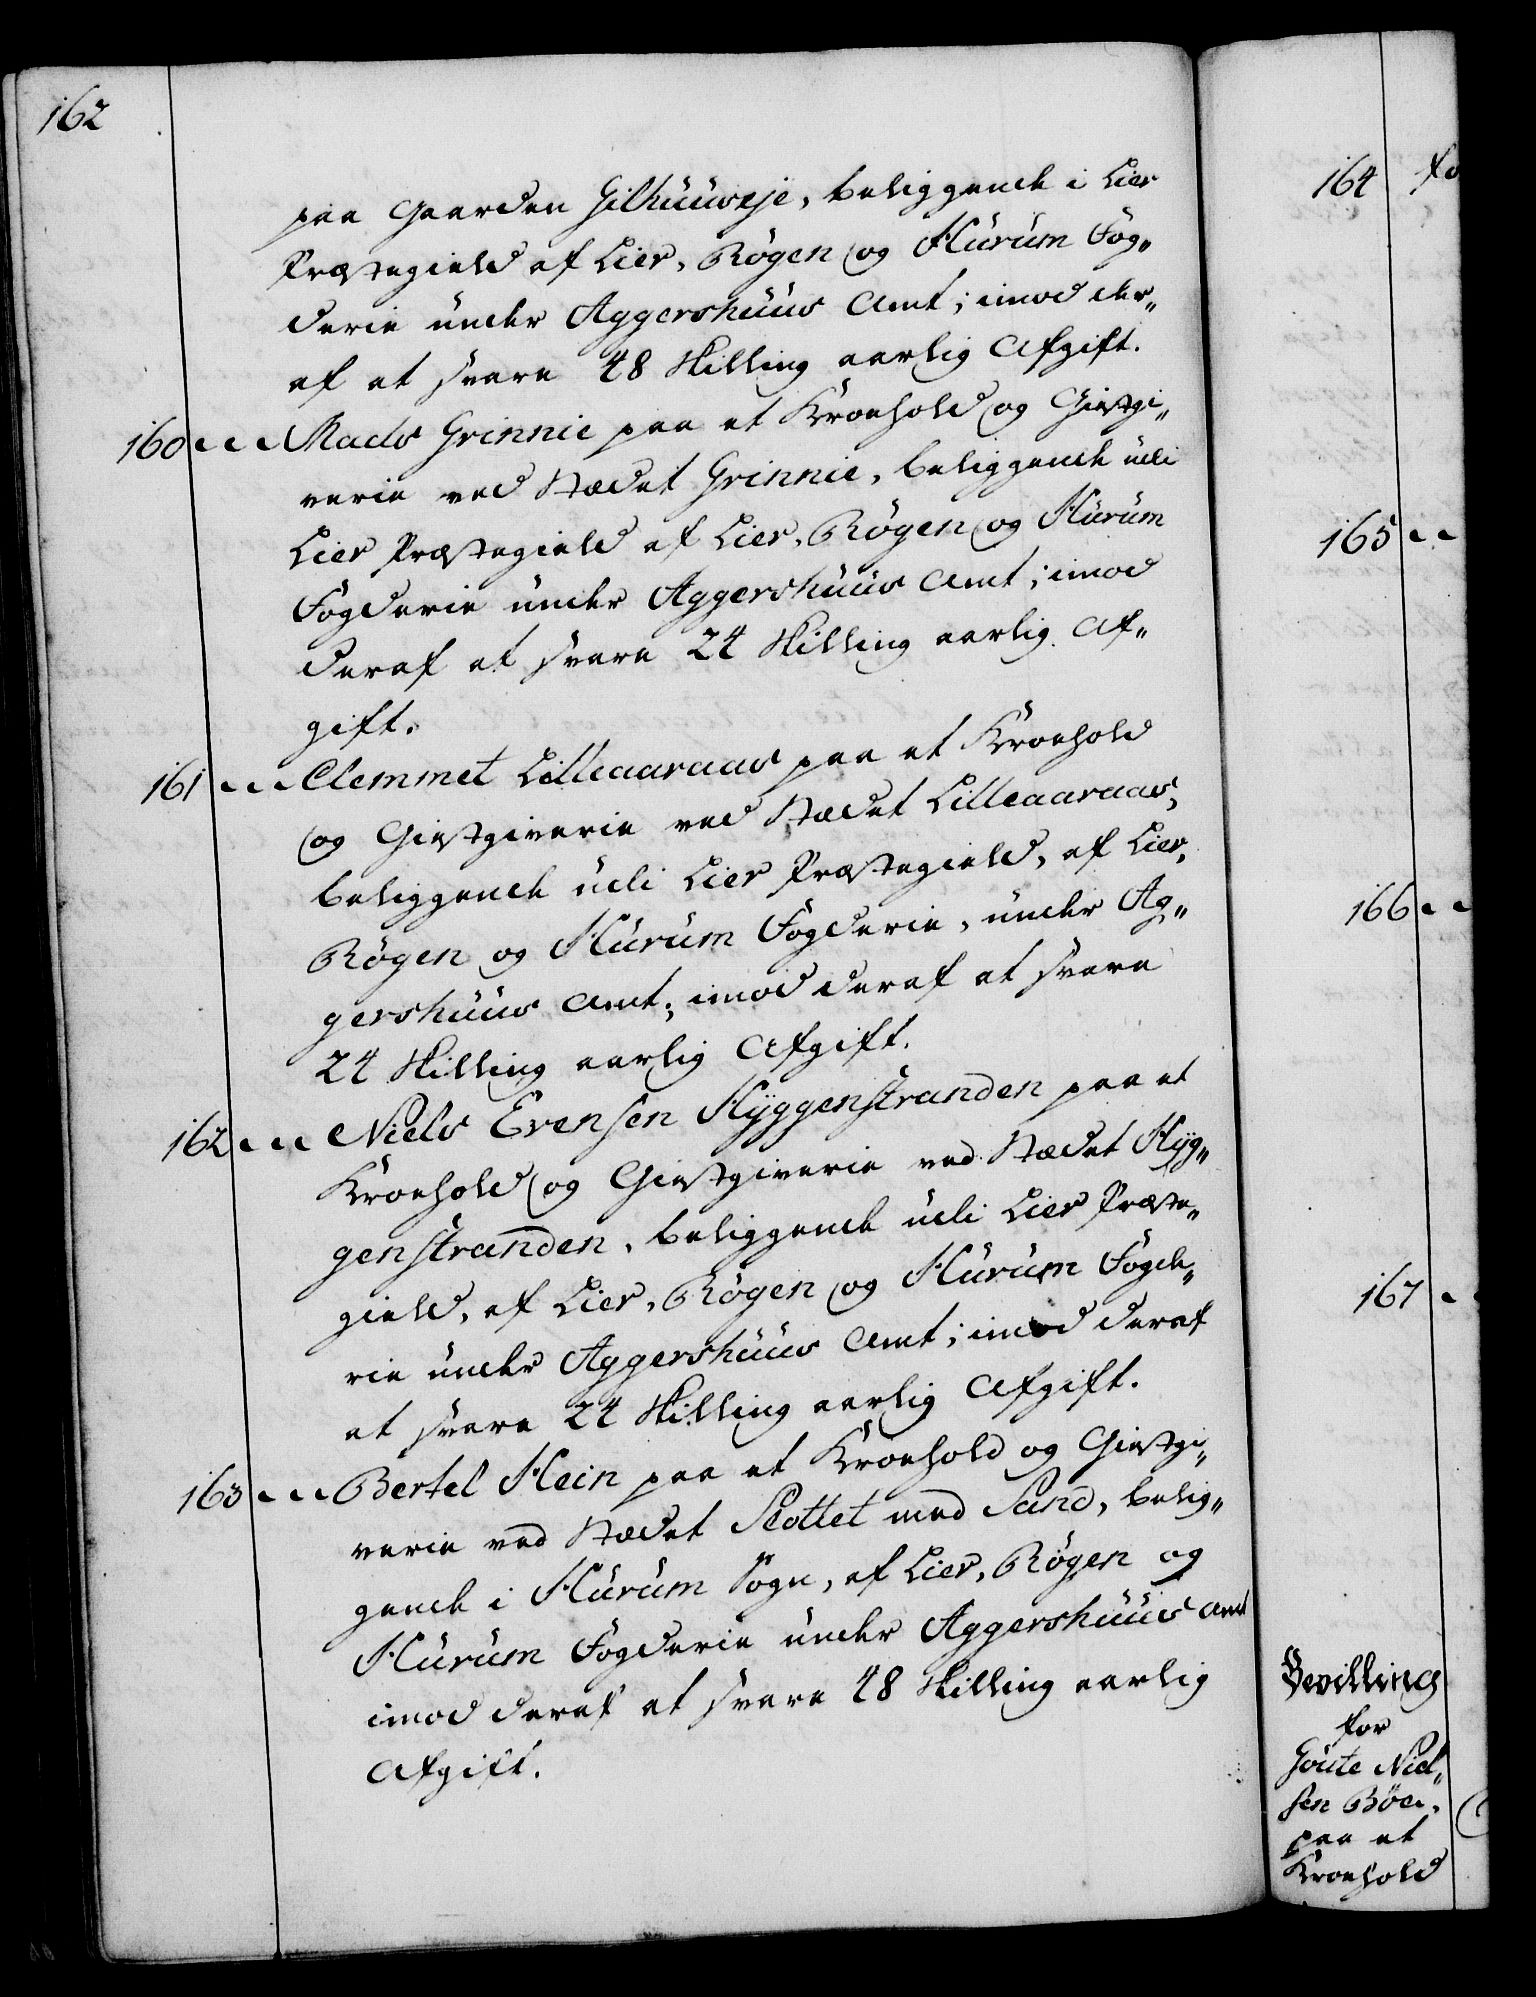 162
paa Gaarden Gilhuuseje, beliggende i Lier
Præstegield af Lier, Røgen og Hurum Fog„
derie under Aggershuus Amt; imod der„
af at svare 48 Skilling aarlig Afgift.
160 Mads Grinnie paa et Kroehold og Giestgi„
verie ved Stædet Grinnie, beliggende udi
Lier Præstegield af Lier, Røgen og Hurum
Fogderie under Aggershuus Amt; imod
deraf at svare 24 Skilling aarlig Af„
gift.
161 Clemmet Lilleaaraas paa et Kroehold
og Giestgiverie ved Stædet Lilleaaraas,
beliggende udi Lier Præstegield, af Lier,
Røgen og Hurum Fogderie, under Ag„
gershuus Amt; imod deraf at svare
24 Skilling aarlig Afgift.
162 Niels Evensen Hyggenstranden paa et
Kroehold og Giestgiverie ved Stædet Hyg„
genstranden, beliggende udi Lier Præste„
gield, af Lier, Røgen og Hurum Fogde„
rie under Aggershuus Amt; imod deraf
at svare 24 Skilling aarlig Afgift.
163 Bertel Hein paa et Kroehold og Giestgi„
verie ved Stædet Slottet med Sand, belig„
gende i Hurum Sogn, af Lier, Røgen og
Hurum Fogderie under Aggershuus Amt
imod deraf at svare 48 Skilling aarlig
Afgift.
164
165
166
167
Bevilling
for
Goute Niel„
sen Böe,
paa et
Kroehold